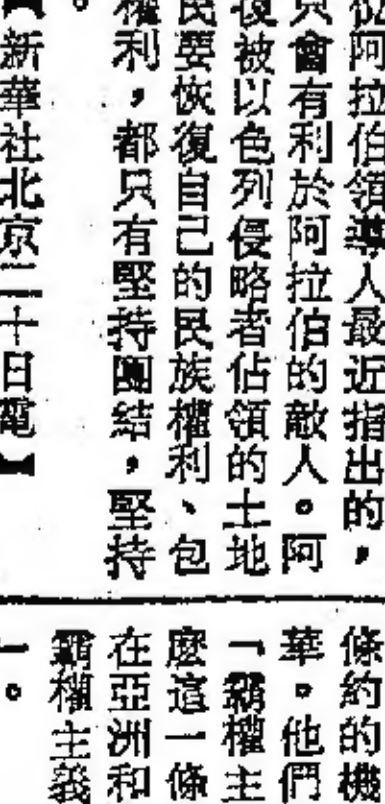 位阿拉伯領導人最近指出的，
只會有利於阿拉伯的敵人。阿
復被以色列侵略者佔領的土地
民要恢復自己的民族權利、包
權利，都只有堅持團結，堅持
。
【新華社北京二十日電】
條約的機
華。他們
「霸權主
麼這一條
在亞洲和
霸權主義
一。